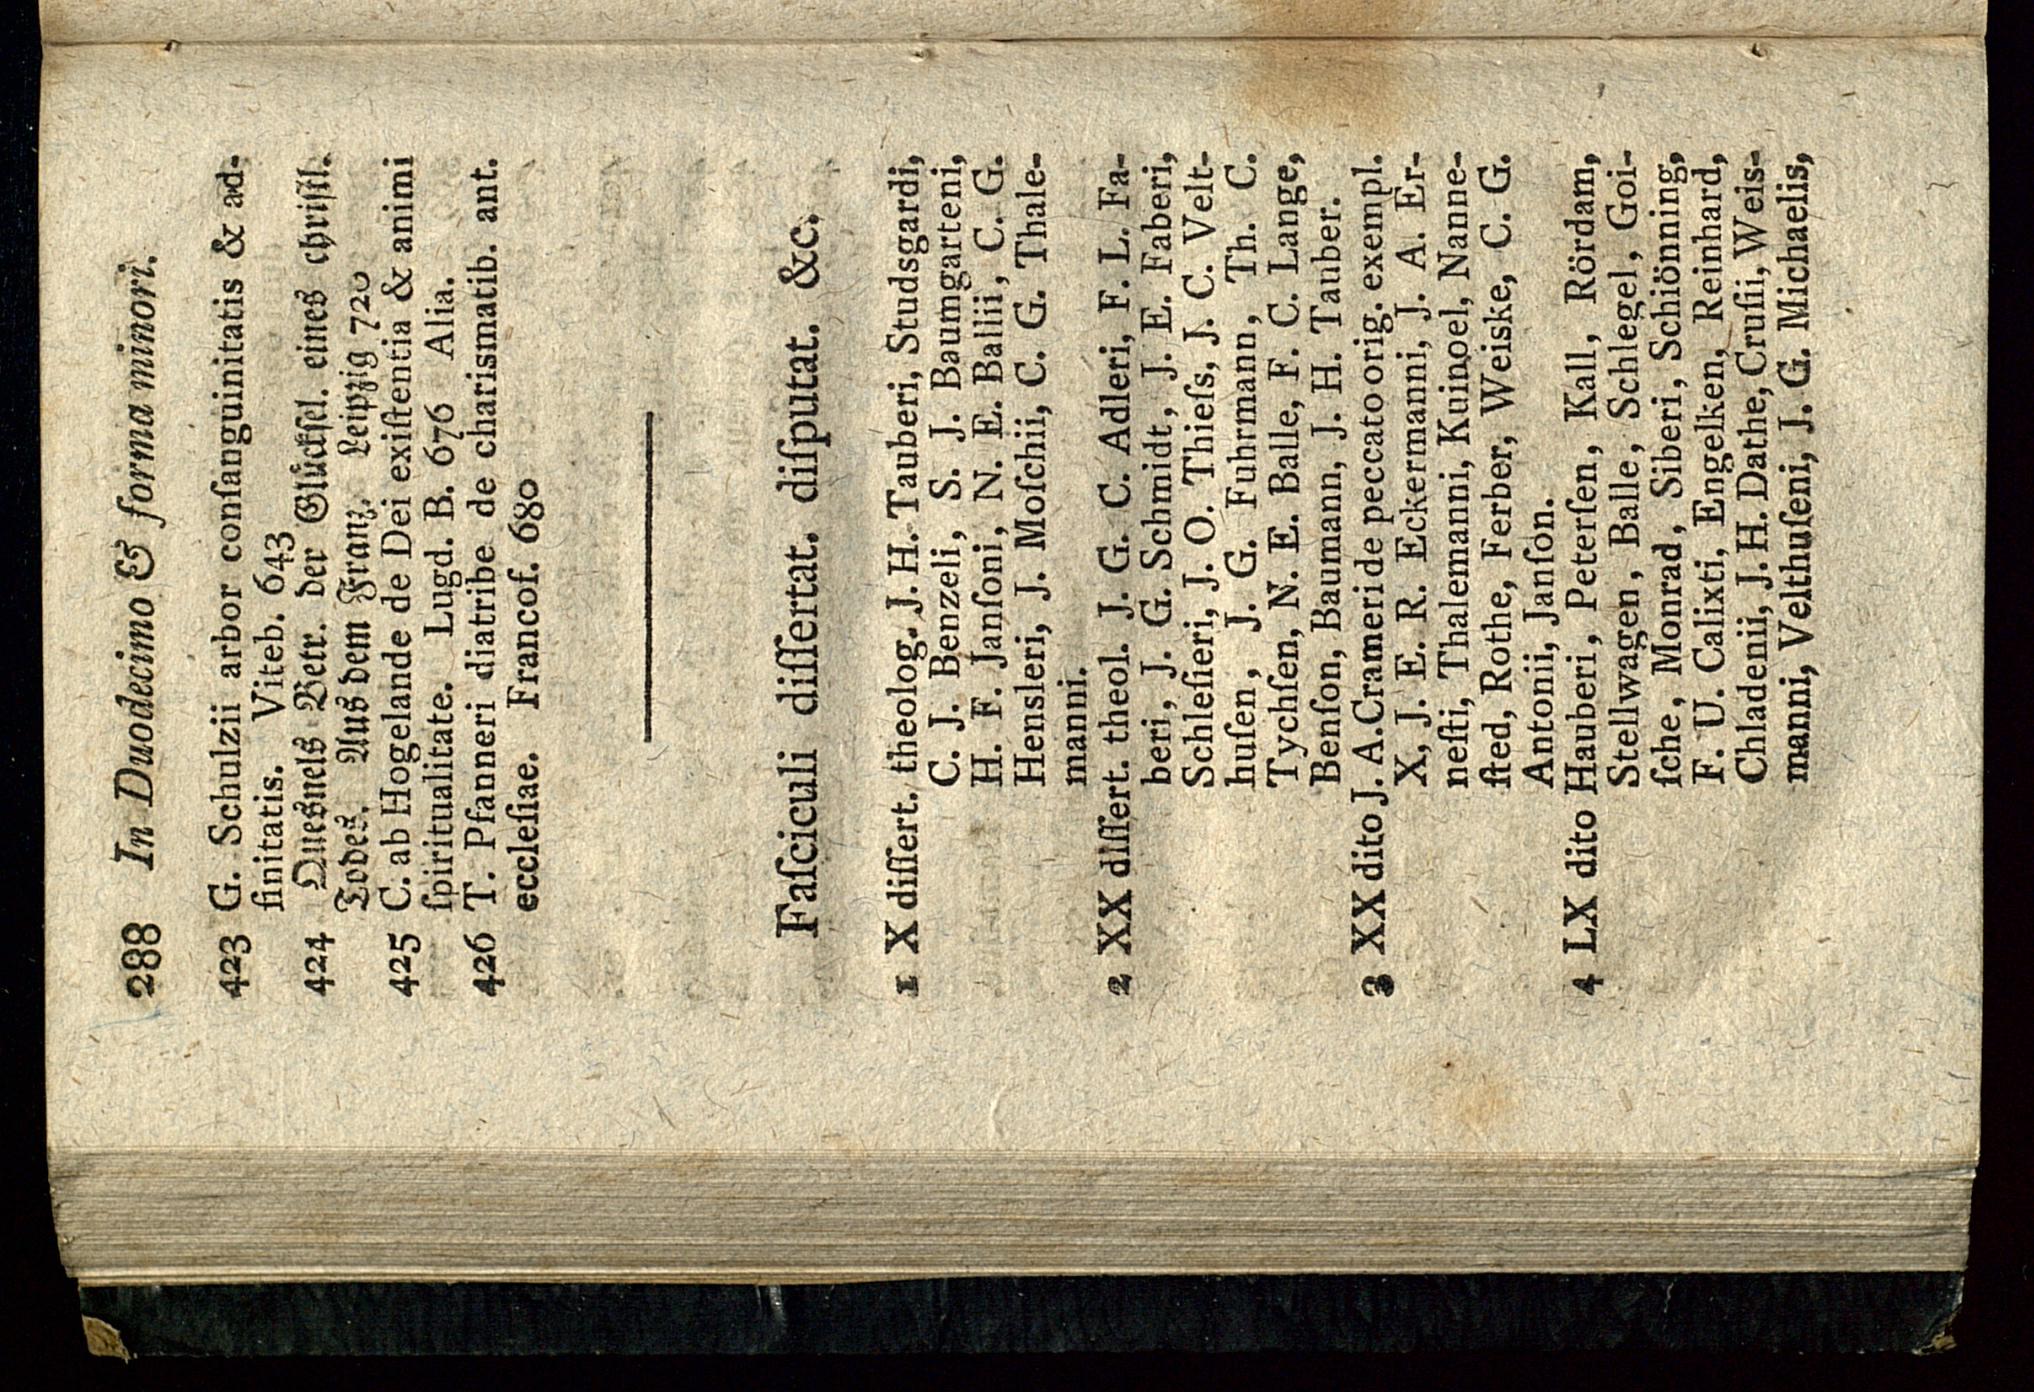 288 In Duodecimo & forma minori.
423 G. Schulzii arbor conſanguinitatis & ad-
finitatis. Viteb. 643
424 Quesnels Betr. der Glückſel. eines chriſtl.
Todes. Aus dem Franz. Leipzig 720
425 C. ab Hogelande de Dei exiſtentia & animi
ſpiritualitate. Lugd. B. 676 Alia.
426 T. Pfanneri diatribe de charismatib. ant.
eccleſiae. Francof. 680
Faſciculi diſſertat. diſputat. &c.
1 X diſſert. theolog. J. H. Tauberi, Studsgardi,
C. J. Benzeli, S. J. Baumgarteni,
H. F. Janſoni, N. E. Ballii, C. G.
Hensleri, J. Moſchii, C. G. Thale-
manni.
2 XX diſſert. theol. J. G. C. Adleri, F. L. Fa-
beri, J. G. Schmidt, J. E. Faberi,
Schleſieri, J. O. Thieſs, J. C. Velt-
huſen, J. G. Fuhrmann, Th. C.
Tychſen, N. E. Balle, F. C. Lange,
Benſon, Baumann, J. H. Tauber.
3 XX dito J. A. Crameri de peccato orig. exempl.
X, J. E. R. Eckermanni, J. A. Er-
neſti, Thalemanni, Kuinoel, Nanne-
ſted, Rothe, Ferber, Weiske, C. G.
Antonii, Janſon.
4 LX dito Hauberi, Peterſen, Kall, Rördam,
Stellwagen, Balle, Schlegel, Goi-
ſche, Monrad, Siberi, Schiönning,
F. U. Calixti, Engelken, Reinhard,
Chladenii, J. H. Dathe, Cruſii, Weis-
manni, Velthuſeni, J. G. Michaelis,